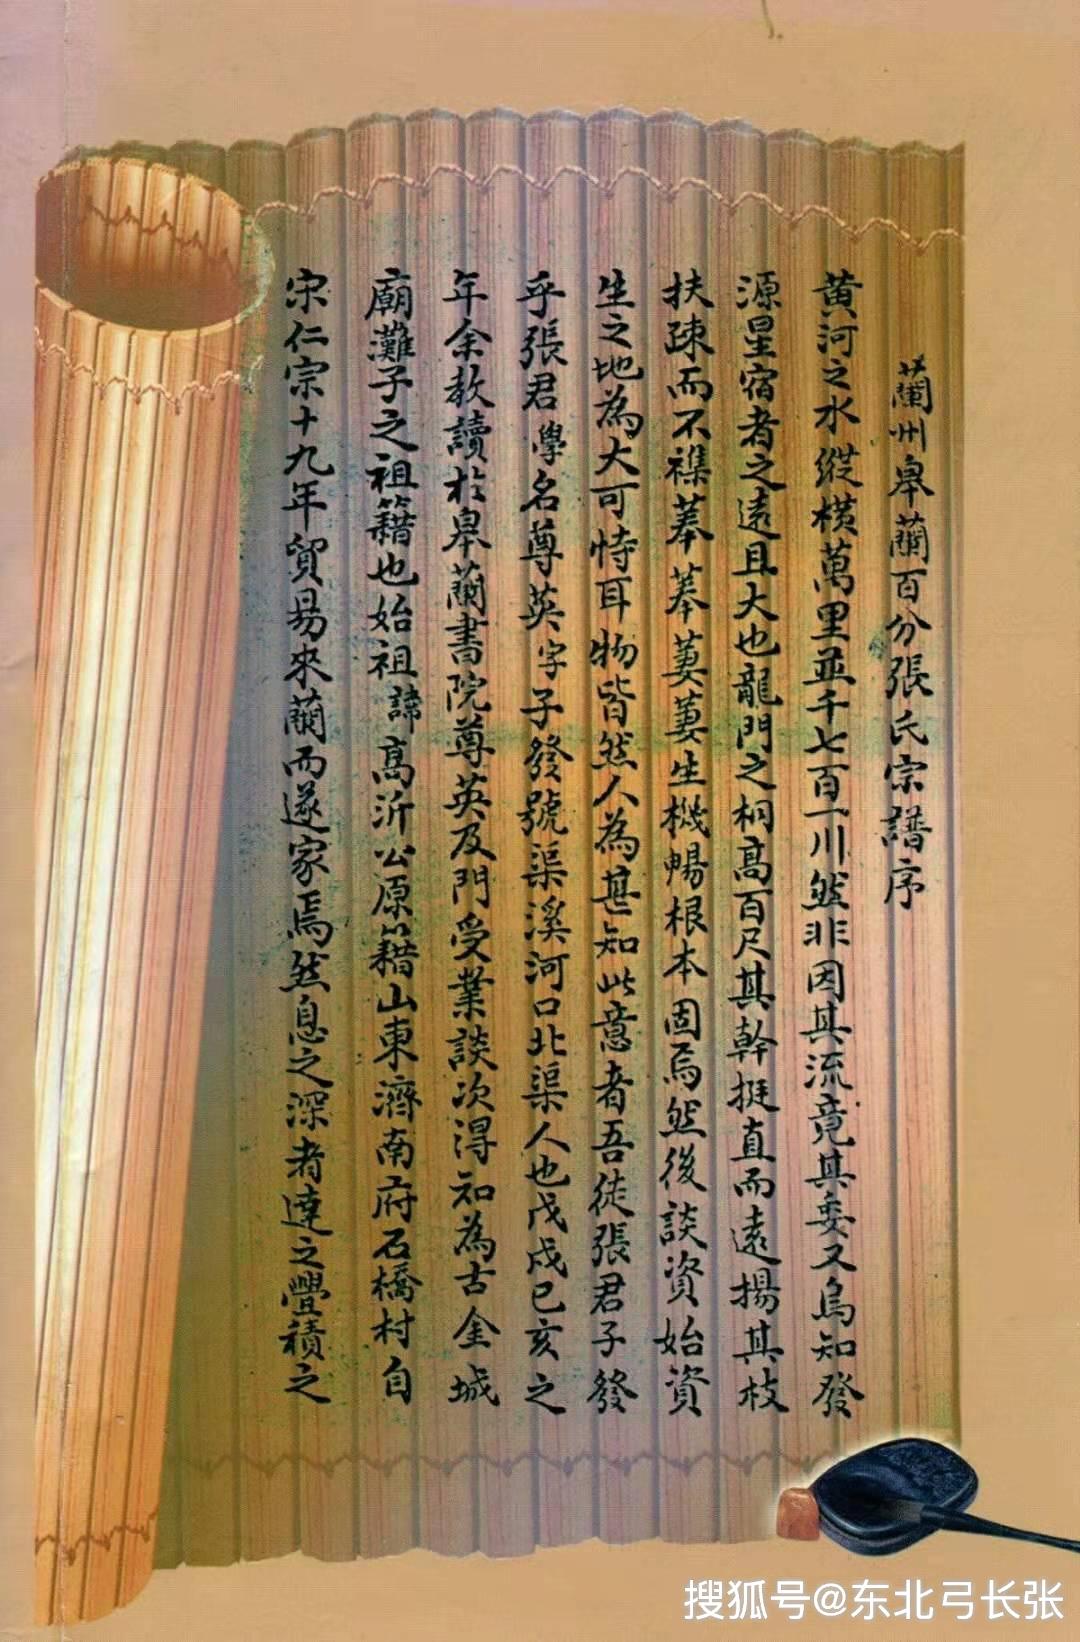 蘭州皋蘭百分張氏宗譜序
黃河之水縱橫萬里並千七百一川然非因其流竟其委又烏知發
源星宿者之遠且大也龍門之桐高百尺其幹挺直而遠揚其枝
扶疎而不襍菶菶萋萋生機暢根本固焉然後談資始資
生之地為大可恃耳物皆然人為甚知此意者吾徒張君子發
乎張君學名尊英字子發號渠溪河口北渠人也戊戌已亥之
年余教讀於皋蘭書院尊英及門受業談次得知為古金城
廟灘子之祖籍也始祖諱高沂公原籍山東濟南府石橋村自
宋仁宗十九年貿易來蘭而遂家焉然息之深者達之豐積之
搜狐号@东北弓长张